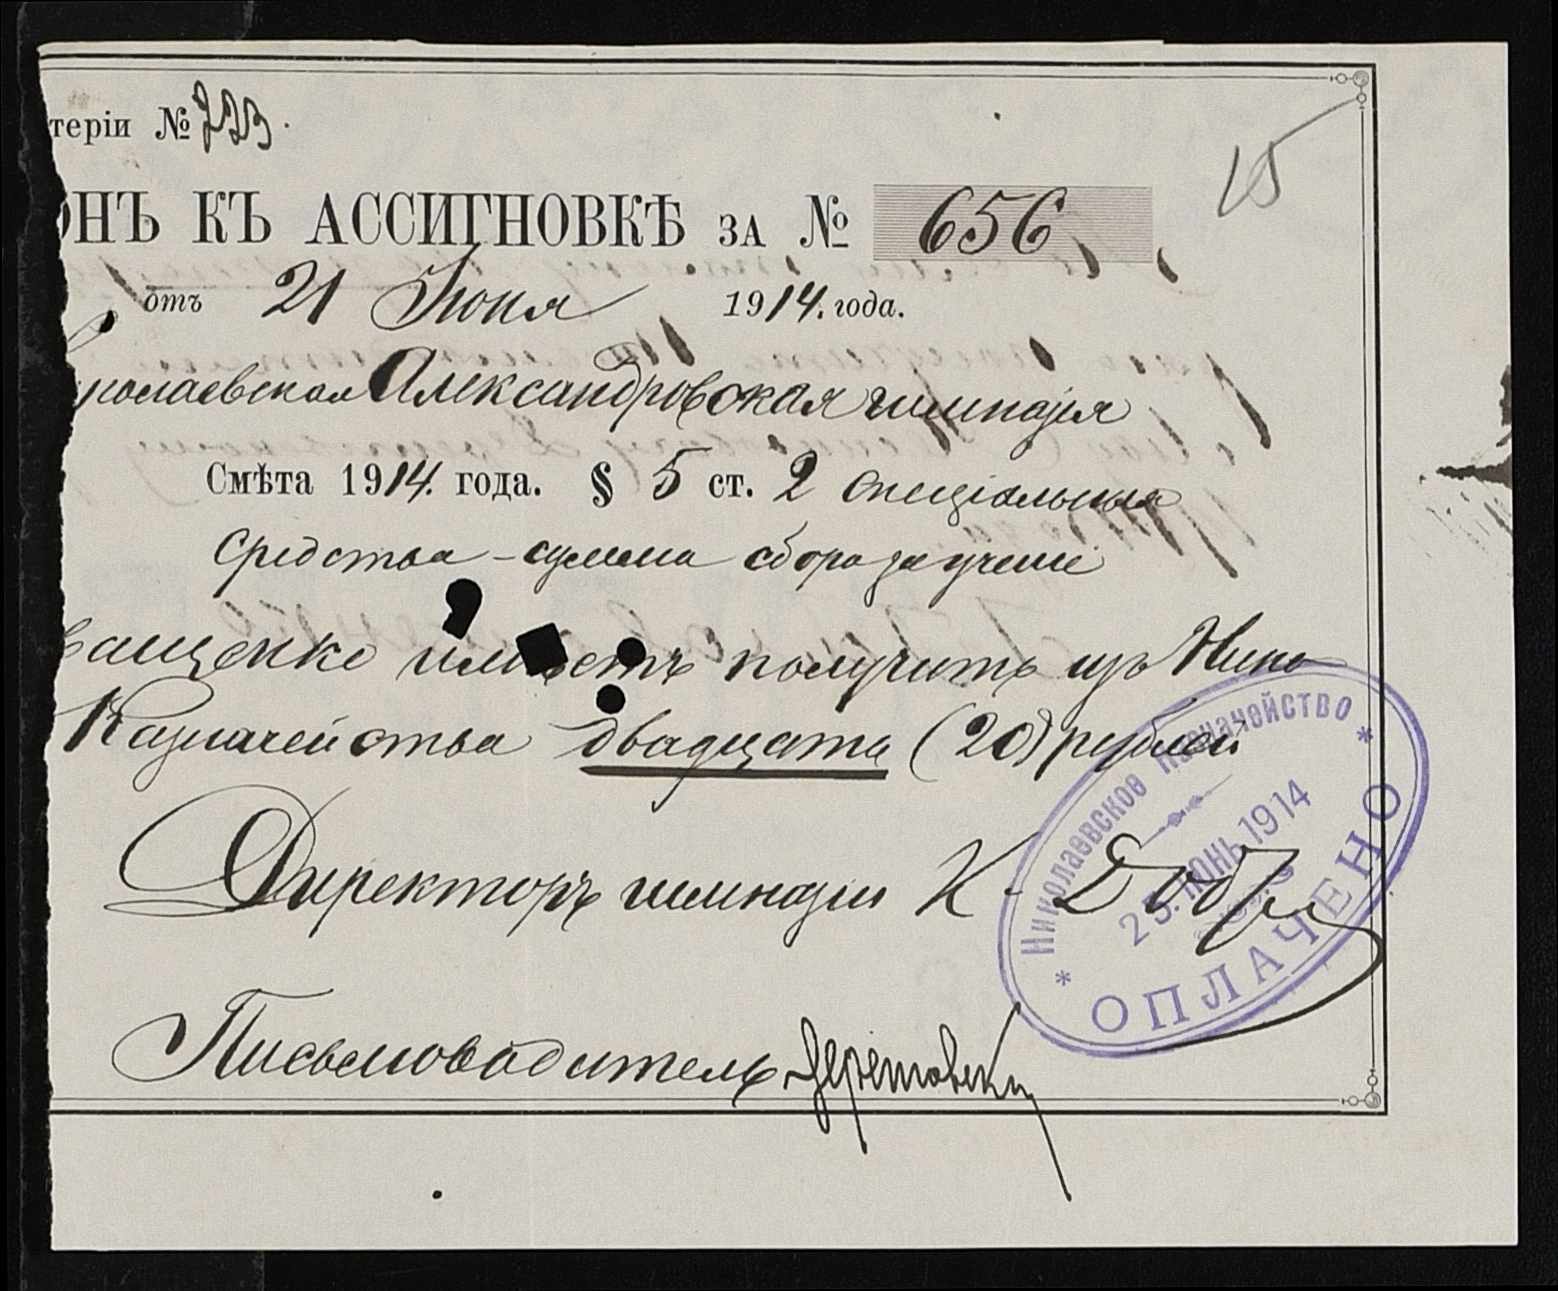 теріи № 723.
15
ОНЪ КЪ АССИГНОВКѢ ЗА № 656
отъ 21 Июня 1914. года.
николаевская Александровская гимназія
Смѣта 1914. года. § 5 ст. 2 спеціальныя
средства - сумма сбора за ученіе
ващенко имѣетъ получить изъ Нико
Казначейства двадцать (20) рублей
Директоръ гимназіи К.
Письмоводитель
Николаевское Казначейство
25. ІЮНЬ 1914
* ОПЛАЧЕНО *